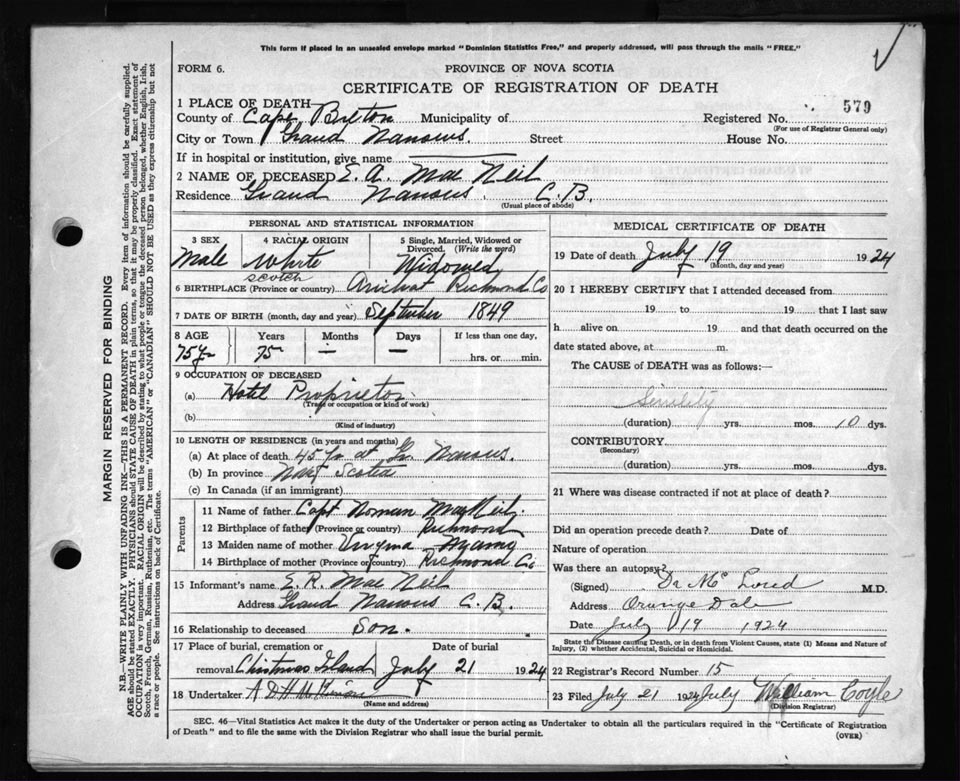 This form if placed in an unsealed envelope marked "Dominion Statistics Free," and properly addressed, will pass through the mails "FREE."
FORM 6. PROVINCE OF NOVA SCOTIA
CERTIFICATE OF REGISTRATION OF DEATH
1 PLACE OF DEATH
County of Cape Breton Municipality of Registered No. 579
(For use of Registrar General only)
City or Town Grand Narrows Street House No.
If in hospital or institution, give name
2 NAME OF DECEASED E. A. Mac Neil
Residence Grand Narrows C. B.
(Usual place of abode)
PERSONAL AND STATISTICAL INFORMATION
3 SEX 4 RACIAL ORIGIN 5 Single, Married, Widowed or Divorced. (Write the word)
Male White Widowed
Scotch
6 BIRTHPLACE (Province or country) Arichat Richmond Co
7 DATE OF BIRTH (month, day and year) September 1849
8 AGE Years Months Days If less than one day,
75 yr 75 — — hrs. or min.
9 OCCUPATION OF DECEASED
(a) Hotel Proprietor
(Trade or occupation or kind of work)
(b)
(Kind of industry)
10 LENGTH OF RESIDENCE (in years and months)
(a) At place of death 45 yr at Gr. Narrows.
(b) In province Scotia
(c) In Canada (if an immigrant)
Parents
11 Name of father Capt MacNeil
12 Birthplace of father (Province or country) Richmond
13 Maiden name of mother
14 Birthplace of mother (Province or country) Richmond Co
15 Informant's name E. R. Mac Neil
Address Grand Narrows C. B.
16 Relationship to deceased Son.
17 Place of burial, cremation or Date of burial
removal Christmas Island July 21 1924
18 Undertaker A D H
(Name and address)
MEDICAL CERTIFICATE OF DEATH
19 Date of death July 19 1924
(Month, day and year)
20 I HEREBY CERTIFY that I attended deceased from
19 to 19 that I last saw
h alive on 19 and that death occurred on
date stated above, at m.
The CAUSE of DEATH was as follows:—
Senility
(duration) yrs. mos. 10 dys.
CONTRIBUTORY
(Secondary)
(duration) yrs. mos. dys.
21 Where was disease contracted if not at place of death?
Did an operation precede death? Date of
Nature of operation
Was there an autopsy?
(Signed) Dr Mc Leod M.D.
Address Orange Dale
Date July 19 1924
State the Disease causing Death, or in death from Violent Causes, state (1) Means and Nature of Injury, (2) whether Accidental, Suicidal or Homicidal.
22 Registrar's Record Number 15
23 Filed July 21 1924 July William Coyle
(Division Registrar)
SEC. 46—Vital Statistics Act makes it the duty of the Undertaker or person acting as Undertaker to obtain all the particulars required in the "Certificate of Registration
of Death" and to file the same with the Division Registrar who shall issue the burial permit. (OVER)
MARGIN RESERVED FOR BINDING
N.B.—WRITE PLAINLY WITH UNFADING INK—THIS IS A PERMANENT RECORD. Every item of information should be carefully supplied.
AGE should be stated EXACTLY. PHYSICIANS should STATE CAUSE OF DEATH in plain terms, so that it may be properly classified. Exact statement of
OCCUPATION is very important. RACIAL ORIGIN will be described by stating to what people or tongue the deceased person belonged, whether English, Irish,
Scotch, French, German, Russian, Ruthenian, etc. The terms "AMERICAN" or "CANADIAN" SHOULD NOT BE USED as they express citizenship but not
a race or people. See instructions on back of Certificate.